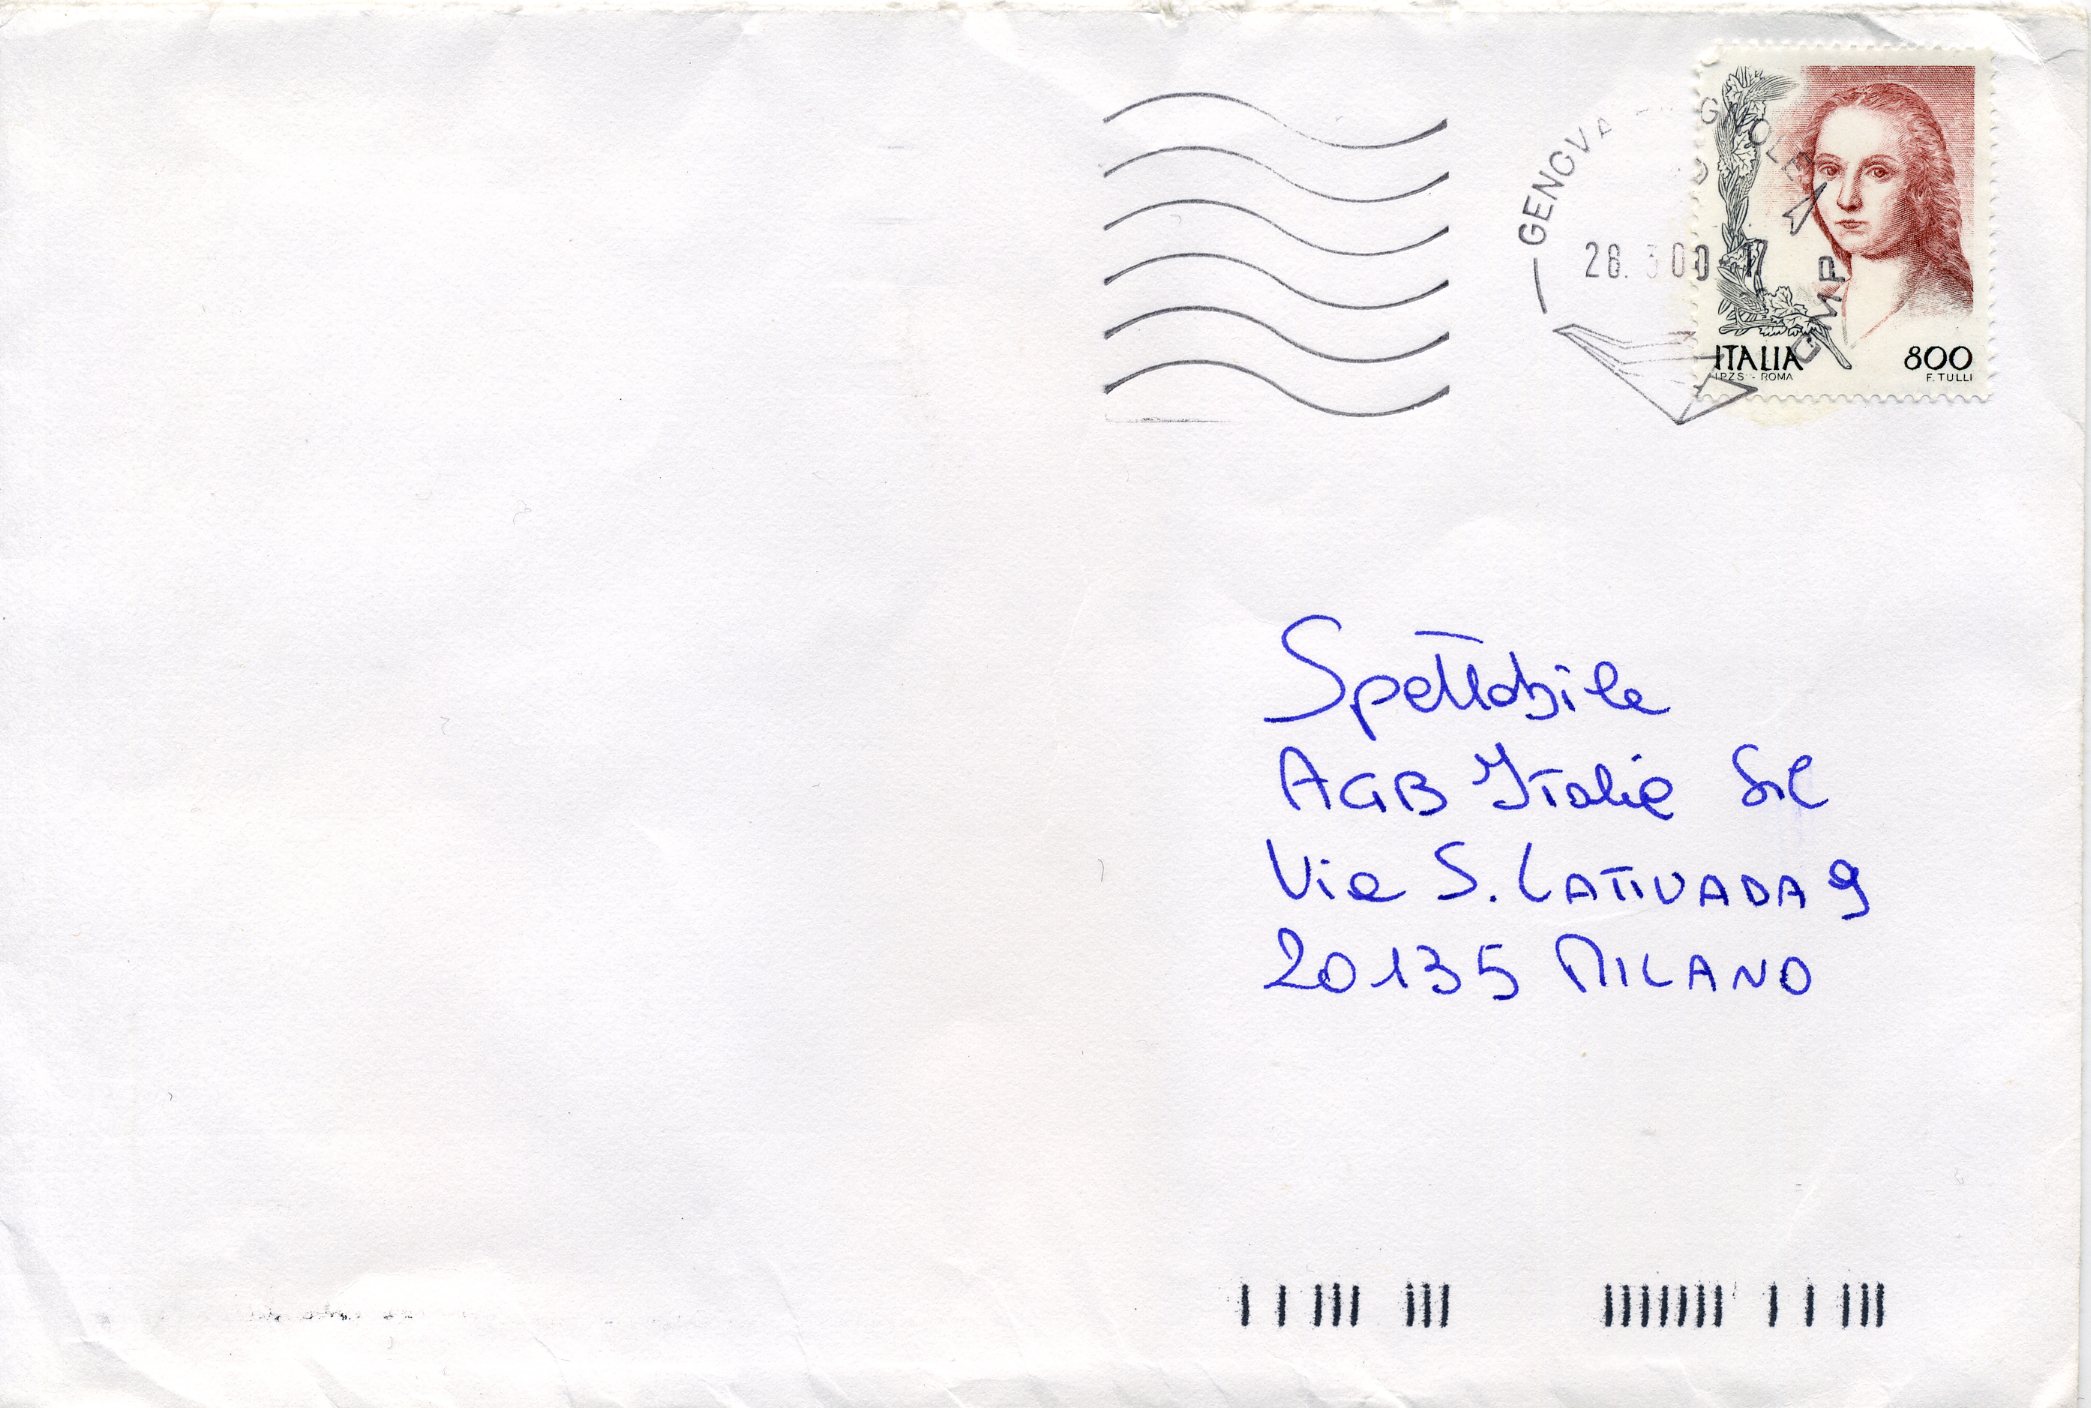 GENOVA
28. 3 00
CMP
ITALIA 800
I.P.Z.S. - ROMA F. TULLI
Spettabile
AGB Italia Srl
Via S. LATTUADA 9
20135 MILANO